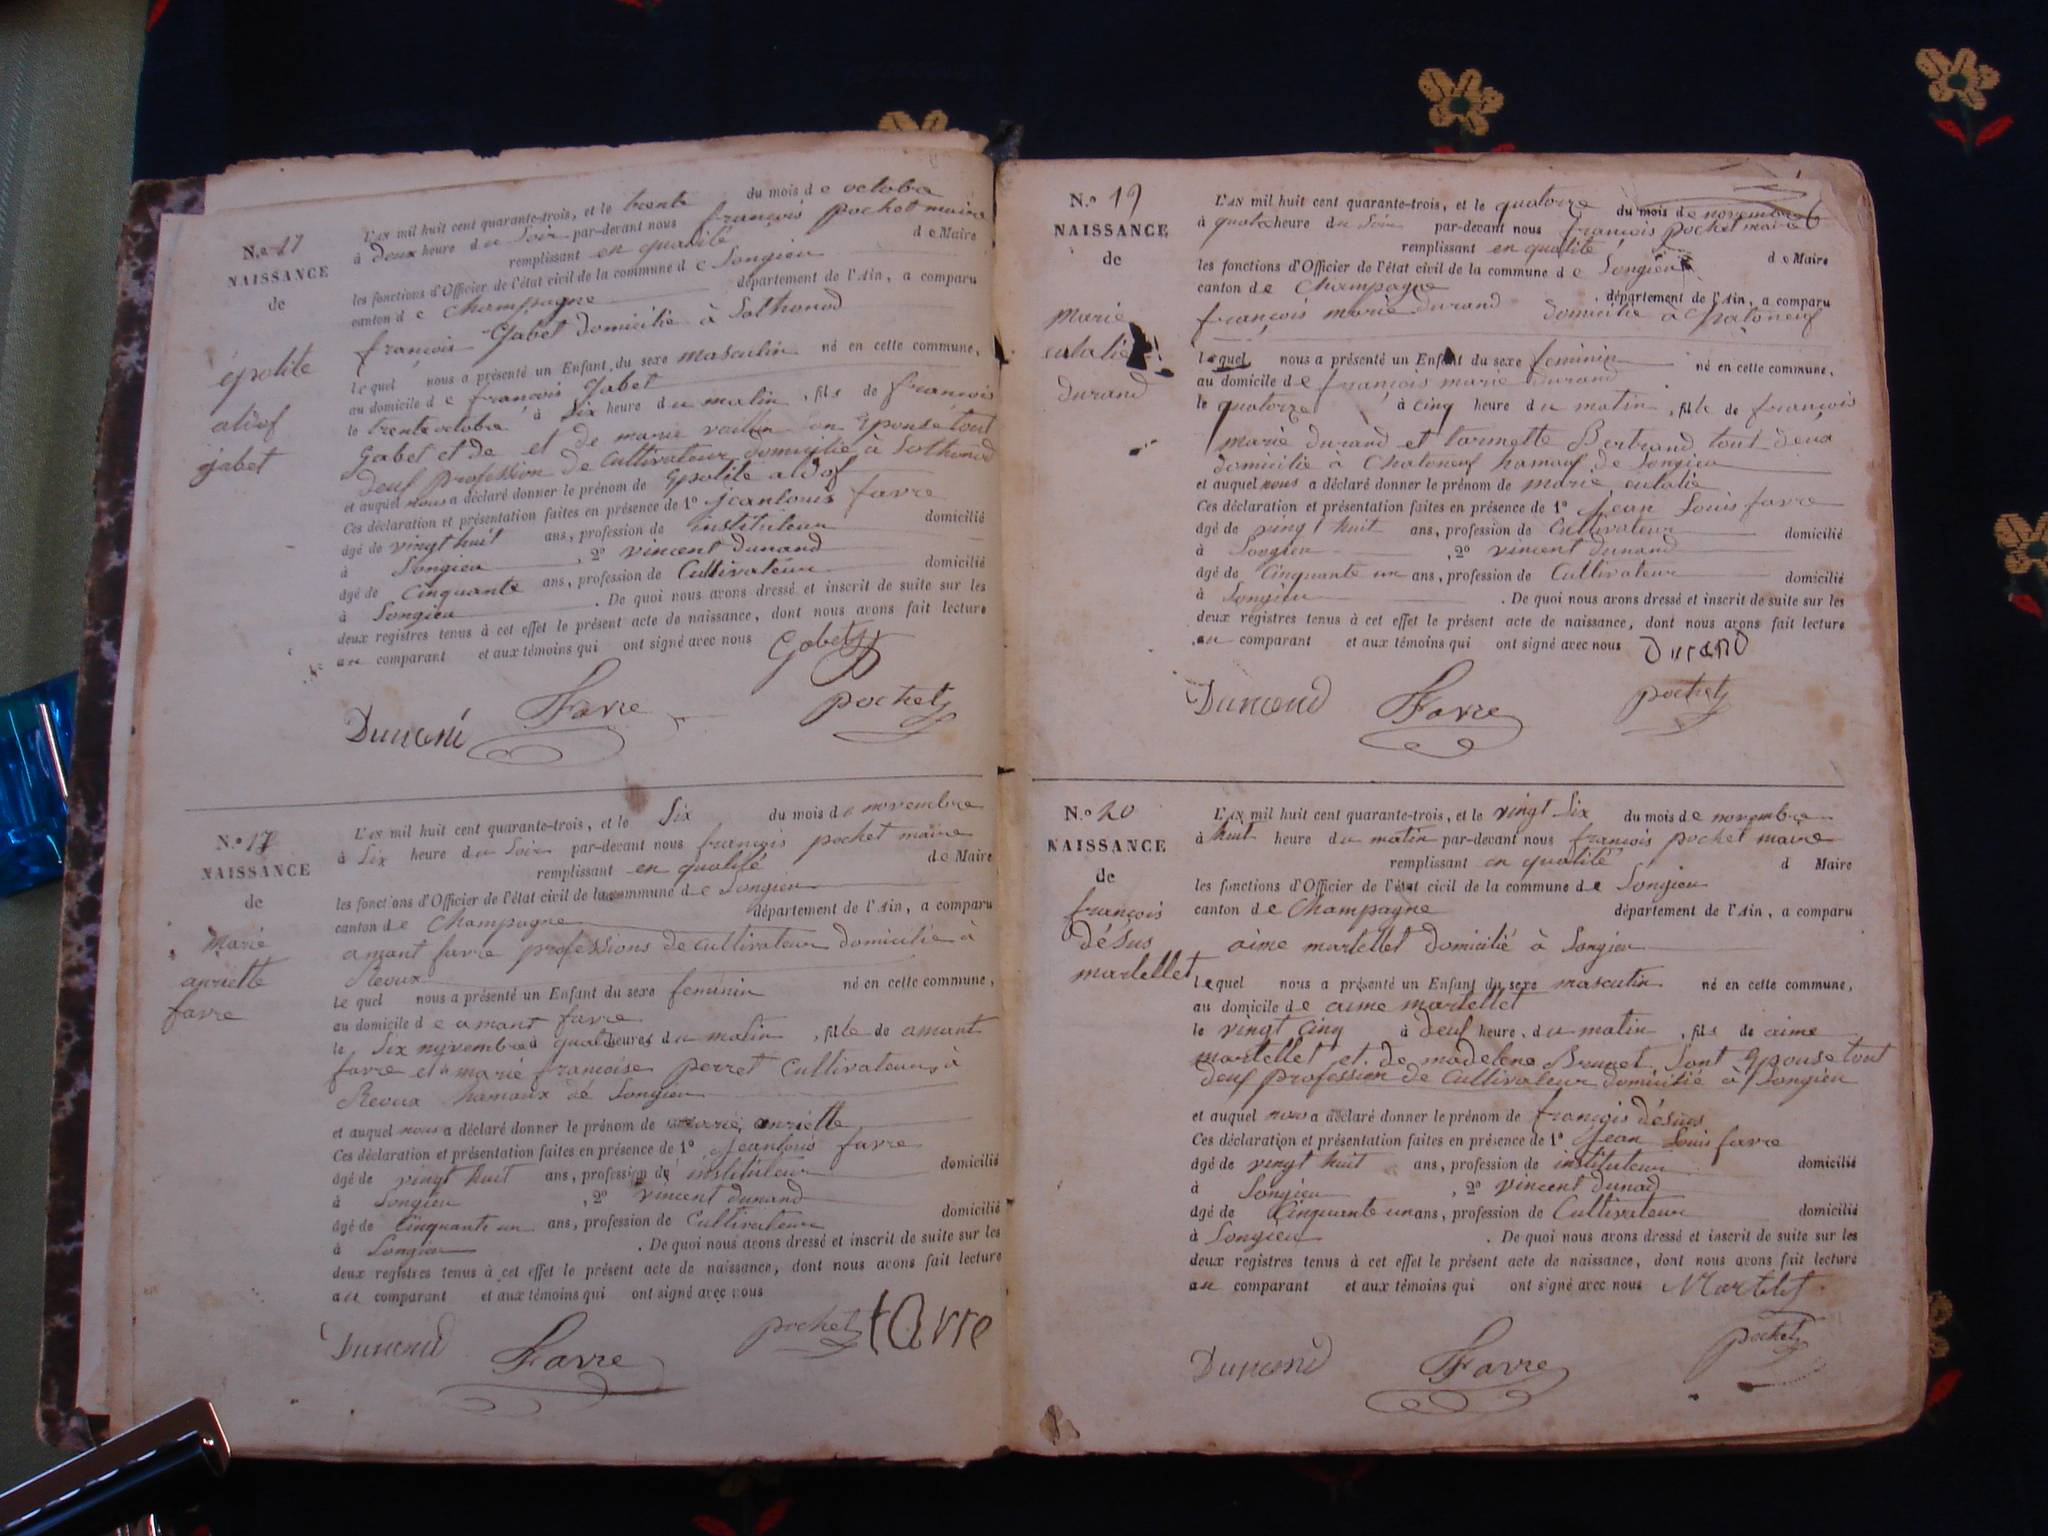 N.o 17
NAISSANCE
de
épolite
aldof
gabet
L'AN mil huit cent quarante-trois, et le trente du mois de octobre
à Deux heure du Soir par-devant nous françois pochet maire
remplissant en qualité de Maire
les fonctions d'Officier de l'état civil de la commune de Songieu
canton de Champagne département de l'Ain, a comparu
françois Gabet domicilié à Sothonod
lequel nous a présenté un Enfant du sexe masculin né en cette commune,
au domicile de françois Gabet
le trente octobre à Six heure du matin, fils de françois
Gabet et de et de marie son Epouse tout
deuf profession de Cultivateur domicilié à Sothonod
et auquel nous a déclaré donner le prénom de Epolite aldof
Ces déclaration et présentation faites en présence de 1º jeanlouis favre
âgé de vingt huit ans, profession de instituteur domicilié
à Songieu, 2º vincent dunand
âgé de Cinquante ans, profession de Cultivateur domicilié
à Songieu. De quoi nous avons dressé et inscrit de suite sur les
deux registres tenus à cet effet le présent acte de naissance, dont nous avons fait lecture
au comparant et aux témoins qui ont signé avec nous Gabet
Dunand Favre pochet
N.o 18
NAISSANCE
de
Marie
anriette
favre
L'AN mil huit cent quarante-trois, et le Six du mois de novembre
à Six heure du Soir par-devant nous françois pochet maire
remplissant en qualité de Maire
les fonctions d'Officier de l'état civil de la commune de Songieu
canton de Champagne département de l'Ain, a comparu
amant favre professions de cultivateur domicilié à
Reoux
lequel nous a présenté un Enfant du sexe feminin né en cette commune,
au domicile de amant favre
le Six novembre à quatre heures du matin, fille de amant
favre et marie françoise perret Cultivateurs à
Reoux hamaux de Songieu
et auquel nous a déclaré donner le prénom de marie anriette
Ces déclaration et présentation faites en présence de 1º Jeanlouis favre
âgé de vingt huit ans, profession de instituteur domicilié
à Songieu, 2º vincent dunand
âgé de Cinquante un ans, profession de Cultivateur domicilié
à Songieu. De quoi nous avons dressé et inscrit de suite sur les
deux registres tenus à cet effet le présent acte de naissance, dont nous avons fait lecture
au comparant et aux témoins qui ont signé avec nous
Dunand Favre pochet favre
N.o 19
NAISSANCE
de
Marie
eulalie
Durand
L'AN mil huit cent quarante-trois, et le quatorze du mois de novembre
à quatre heure du Soir par-devant nous françois pochet maire
remplissant en qualité de Maire
les fonctions d'Officier de l'état civil de la commune de Songieu
canton de Champagne département de l'Ain, a comparu
françois marie durand domicilié à Chatoneuf
lequel nous a présenté un Enfant du sexe feminin né en cette commune,
au domicile de françois marie durand
le quatorze à cinq heure du matin, fille de françois
marie durand et Bertrand tout deux
domicilié à Chatoneuf hamauf de Songieu
et auquel nous a déclaré donner le prénom de marie eulalie
Ces déclaration et présentation faites en présence de 1º Jean Louis favre
âgé de vingt huit ans, profession de Cultivateur domicilié
à Songieu, 2º vincent dunand
âgé de Cinquante un ans, profession de Cultivateur domicilié
à Songieu. De quoi nous avons dressé et inscrit de suite sur les
deux registres tenus à cet effet le présent acte de naissance, dont nous avons fait lecture
au comparant et aux témoins qui ont signé avec nous Durand
Dunand Favre pochet
N.o 20
NAISSANCE
de
françois
désus
martellet
L'AN mil huit cent quarante-trois, et le vingt Six du mois de novembre
à huit heure du matin par-devant nous françois pochet maire
remplissant en qualité d Maire
les fonctions d'Officier de l'état civil de la commune de Songieu
canton de Champagne département de l'Ain, a comparu
aime martellet domicilié à Songieu
lequel nous a présenté un Enfant du sexe masculin né en cette commune,
au domicile de aime martellet
le vingt Cinq à deuf heure du matin, fils de aime
martellet et de madelene Brunet Sont Epouse tout
deuf profession de Cultivateur domicilié à Songieu
et auquel nous a déclaré donner le prénom de françois désus
Ces déclaration et présentation faites en présence de 1º Jean Louis favre
âgé de vingt huit ans, profession de instituteur domicilié
à Songieu, 2º vincent dunad
âgé de Cinquante un ans, profession de Cultivateur domicilié
à Songieu. De quoi nous avons dressé et inscrit de suite sur les
deux registres tenus à cet effet le présent acte de naissance, dont nous avons fait lecture
au comparant et aux témoins qui ont signé avec nous Martelet
Dunand Favre pochet